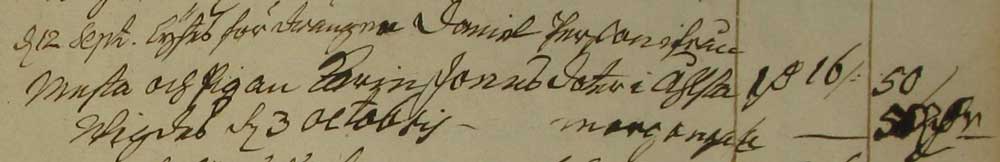 d 12 Sept. Lystes för drängen Daniel Persson ifrån
Mesta och Pigan Karin Jonsdoter i Åhlsta 1 16/: 50/
Wigdes d 3 octobris — morgongåfa — 50